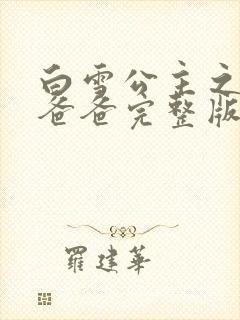 白雪公主之
爸爸完整版
羅建華